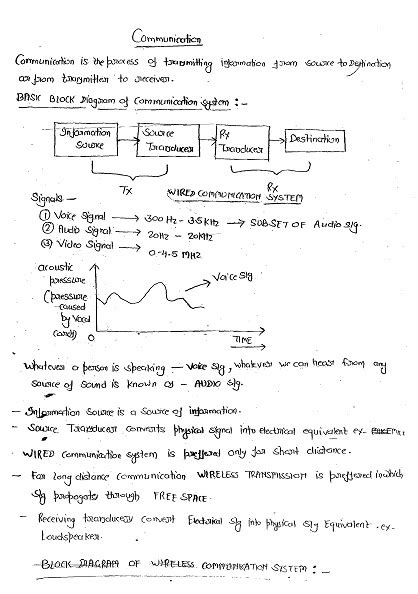 Communication
Communication is the process of transmitting information from source to Destination
or from transmitter to receiver.
BASIC BLOCK Diagram of Communication system : -
Information Source
Source Tranducer
Rx Tranducer
Destination
Tx
Rx
WIRED COMMUNICATION SYSTEM
Signals -
① Voice Signal → 300 Hz - 3.5 KHz → SUBSET OF Audio sig.
② Audio Signal → 20Hz - 20KHz
③ Video Signal → 0-4.5 MHz
acoustic
pressure
(pressure
caused
by Vocal
cords)
Voice sig
0
TIME
Whatever a person is speaking - Voice sig, whatever we can hear from any
source of sound is known as - AUDIO sig.
- Information Source is a source of information.
- Source Tranducer converts physical signal into electrical equivalent ex-
WIRED communication system is preffered only for short distance.
- For long distance communication WIRELESS TRANSMISSION is preffered in which
sig propogates through FREE SPACE.
- Receiving tranducers convert Electrical sig into physical sig Equivalent. ex-
Loudspeaker.
- BLOCK DIAGRAM OF WIRELESS COMMUNICATION SYSTEM : -